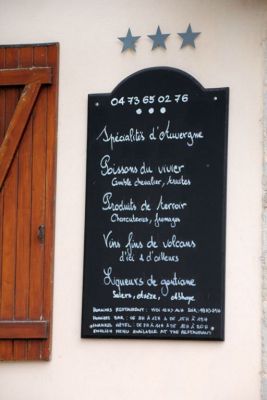 04 73 65 02 76
Spécialités d'Auvergne
Poissons du vivier
Omble chevalier, truites
Produits de terroir
Charcuteries, fromages
Vins fins de volcans
d'ici & d'ailleurs
Liqueurs de gentiane
Salers, avèze,
HORAIRES RESTAURANT : MIDI SOIR
HORAIRES BAR : DE
HORAIRES HÔTEL : DE
ENGLISH MENU AVAILABLE AT THE RESTAURANT